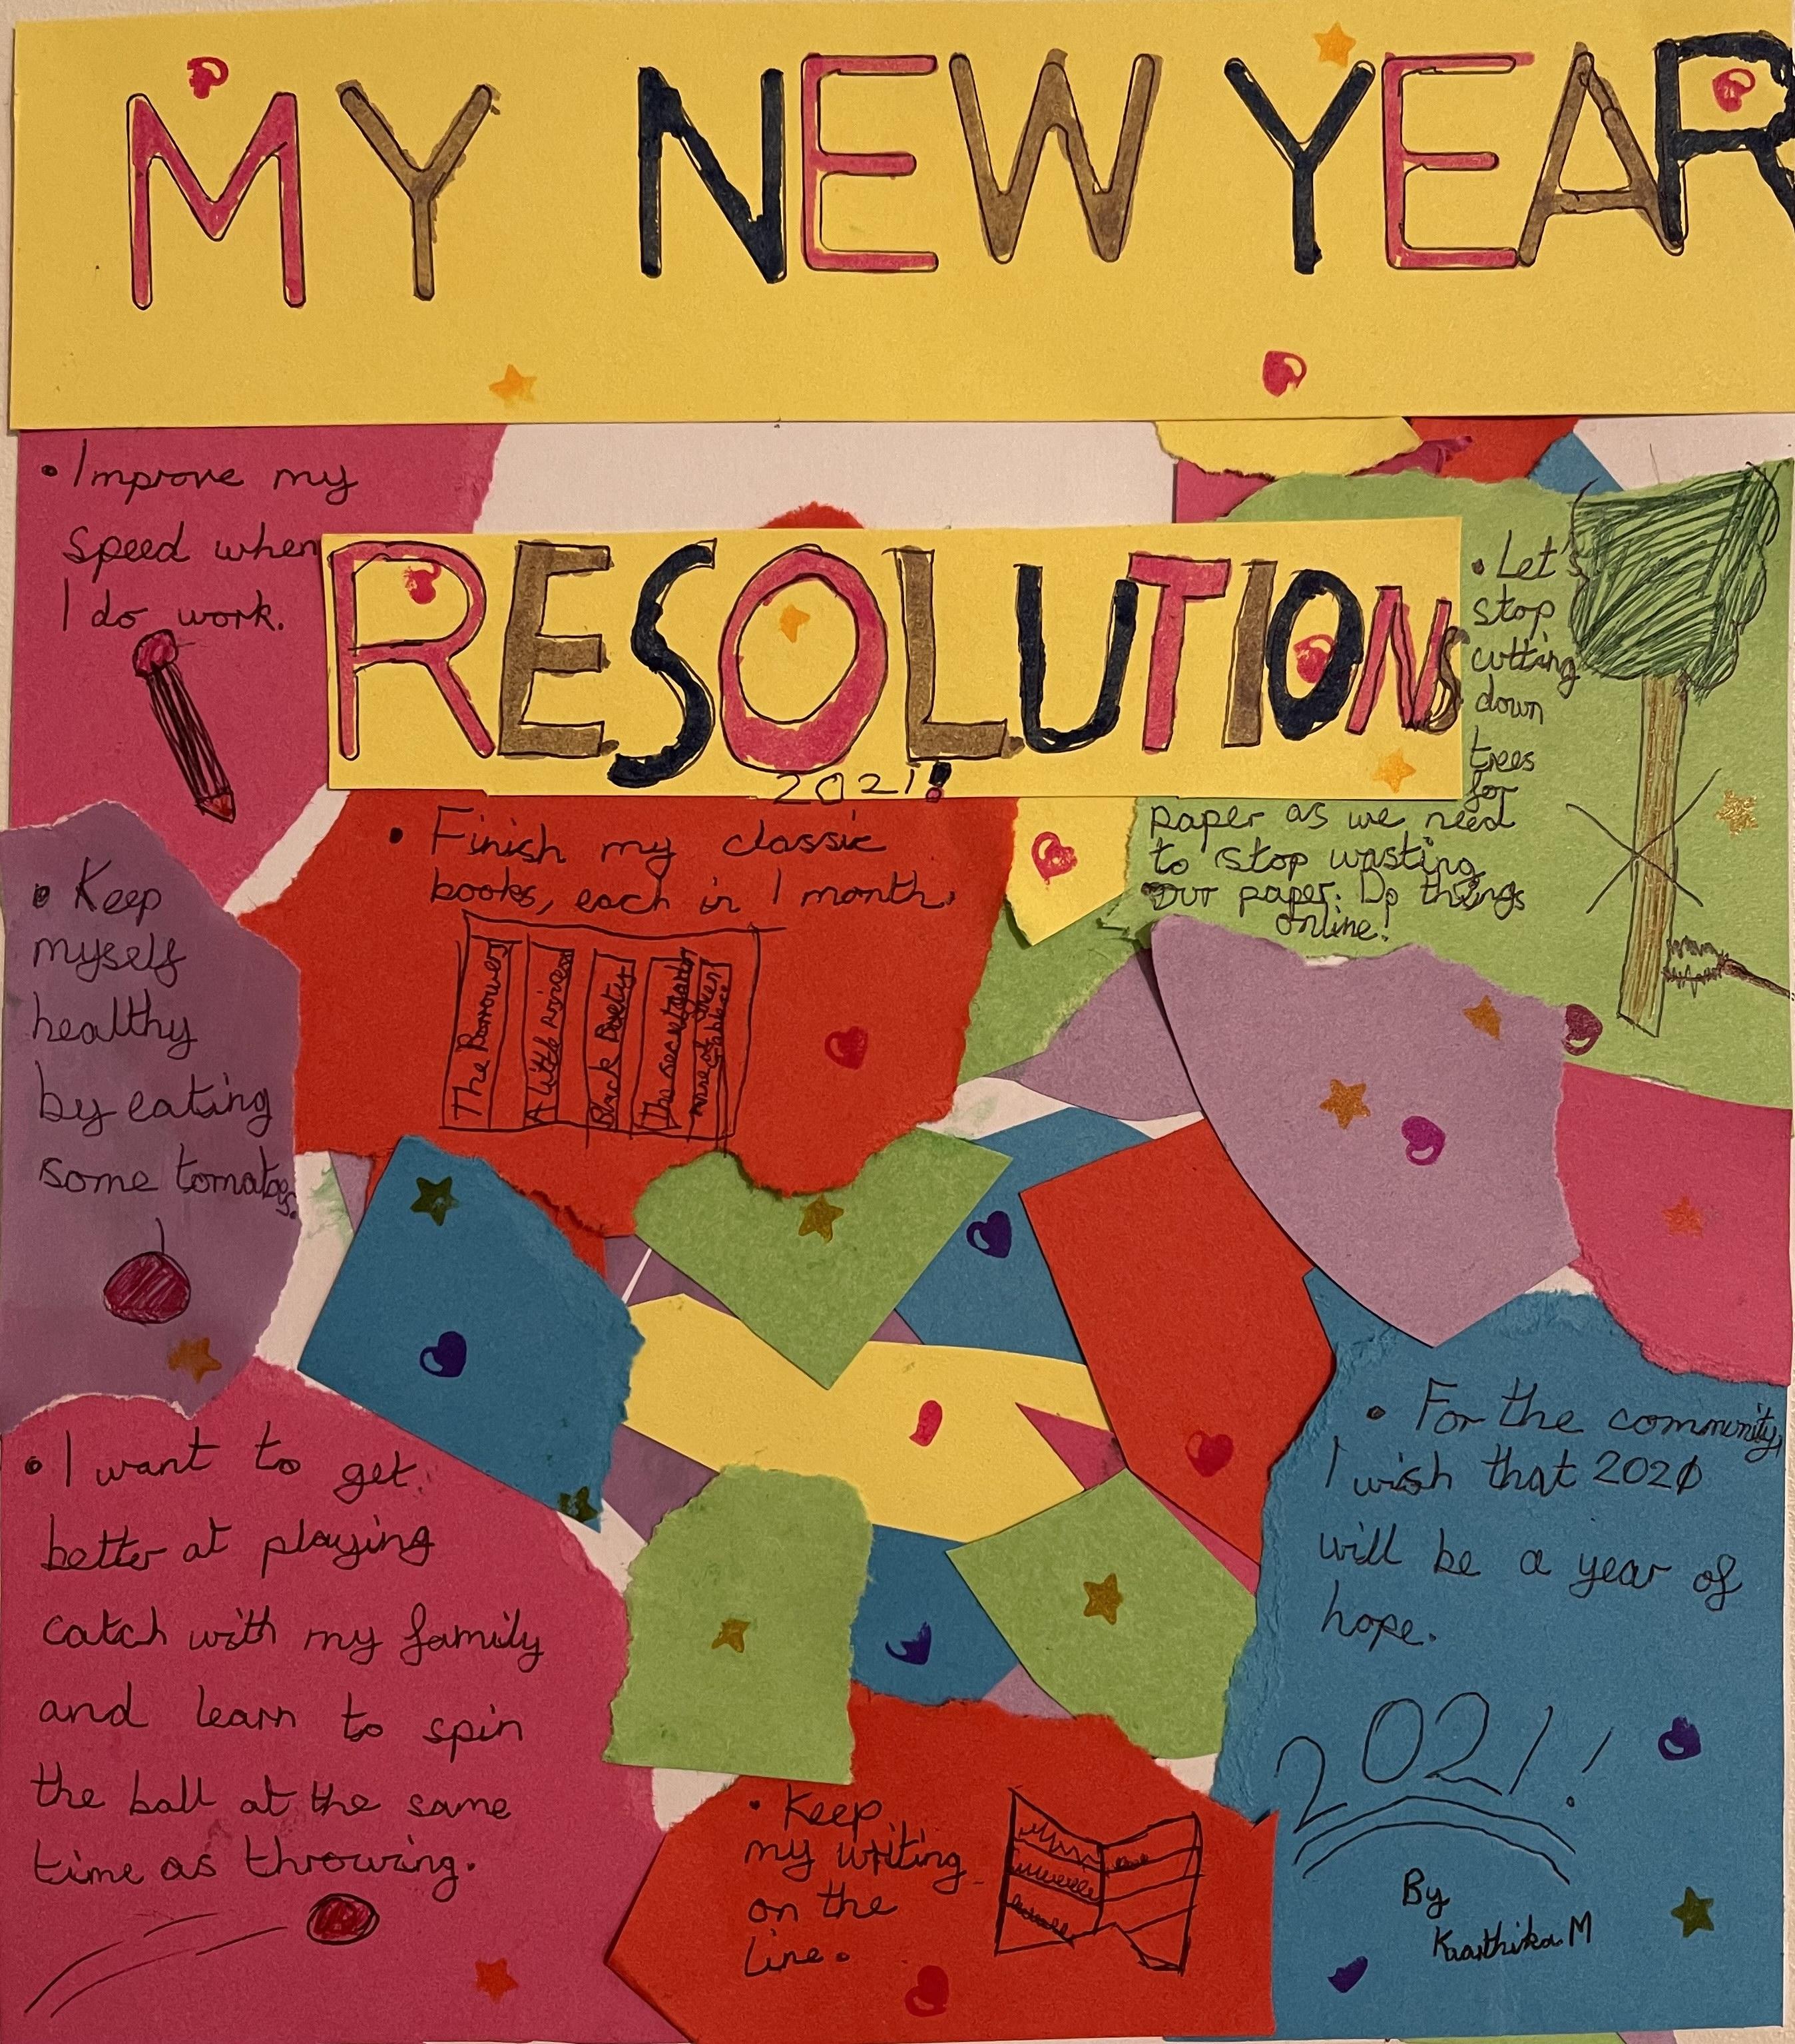 MY NEW YEAR
RESOLUTIONS
2021!
• Improve my
speed when
I do work.
• Let's
stop
cutting
down
trees
for
paper as we need
to stop wasting
our paper. Do things
online!
• Finish my classic
books, each in 1 month.
The Borrowers
A little princess
Black Beauty
The secret garden
Anne of Green Gables
• Keep
myself
healthy
by eating
some tomatoes.
• I want to get
better at playing
catch with my family
and learn to spin
the ball at the same
time as throwing.
• For the community,
I wish that 2020
will be a year of
hope.
2021!
• Keep
my writing
on the
line.
By
Kaarthika.M